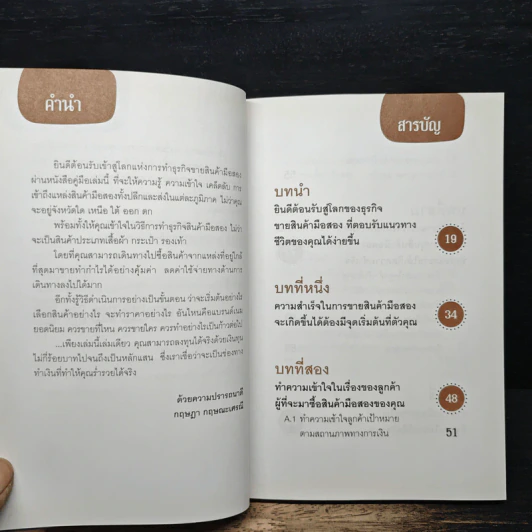 คำนำ
ยินดีต้อนรับเข้าสู่โลกแห่งการทำธุรกิจขายสินค้ามือสอง
ผ่านหนังสือคู่มือเล่มนี้ ที่จะให้ความรู้ ความเข้าใจ เคล็ดลับ การ
เข้าถึงแหล่งสินค้ามือสองทั้งปลีกและส่งในแต่ละภูมิภาค ไม่ว่าคุณ
จะอยู่จังหวัดใด เหนือ ใต้ ออก ตก
พร้อมทั้งให้คุณเข้าใจในวิธีการทำธุรกิจสินค้ามือสอง ไม่ว่า
จะเป็นสินค้าประเภทเสื้อผ้า กระเป๋า รองเท้า
โดยที่คุณสามารถเดินทางไปซื้อสินค้าจากแหล่งที่อยู่ใกล้
ที่สุดมาขายทำกำไรได้อย่างคุ้มค่า ลดค่าใช้จ่ายทางด้านการ
เดินทางลงไปได้มาก
อีกทั้งรู้วิธีดำเนินการอย่างเป็นขั้นตอน ว่าจะเริ่มต้นอย่างไร
เลือกสินค้าอย่างไร จะทำราคาอย่างไร อันไหนคือแบรนด์เนม
ยอดนิยม ควรขายที่ไหน ควรขายใคร ควรทำอย่างไรเป็นก้าวต่อไป
...เพียงเล่มนี้เล่มเดียว คุณสามารถลงทุนได้จริงด้วยเงินทุน
ไม่กี่ร้อยบาทไปจนถึงเป็นหลักแสน ซึ่งเราเชื่อว่าจะเป็นช่องทาง
ทำเงินที่ทำให้คุณร่ำรวยได้จริง
ด้วยความปรารถนาดี
กฤษฎา กฤษณะเศรณี
สารบัญ
บทนำ
ยินดีต้อนรับสู่โลกของธุรกิจ
ขายสินค้ามือสอง ที่ตอบรับแนวทาง
ชีวิตของคุณได้ง่ายขึ้น 19
บทที่หนึ่ง
ความสำเร็จในการขายสินค้ามือสอง
จะเกิดขึ้นได้ต้องมีจุดเริ่มต้นที่ตัวคุณ 34
บทที่สอง
ทำความเข้าใจในเรื่องของลูกค้า
ผู้ที่จะมาซื้อสินค้ามือสองของคุณ 48
A.1 ทำความเข้าใจลูกค้าเป้าหมาย
ตามสถานภาพทางการเงิน 51